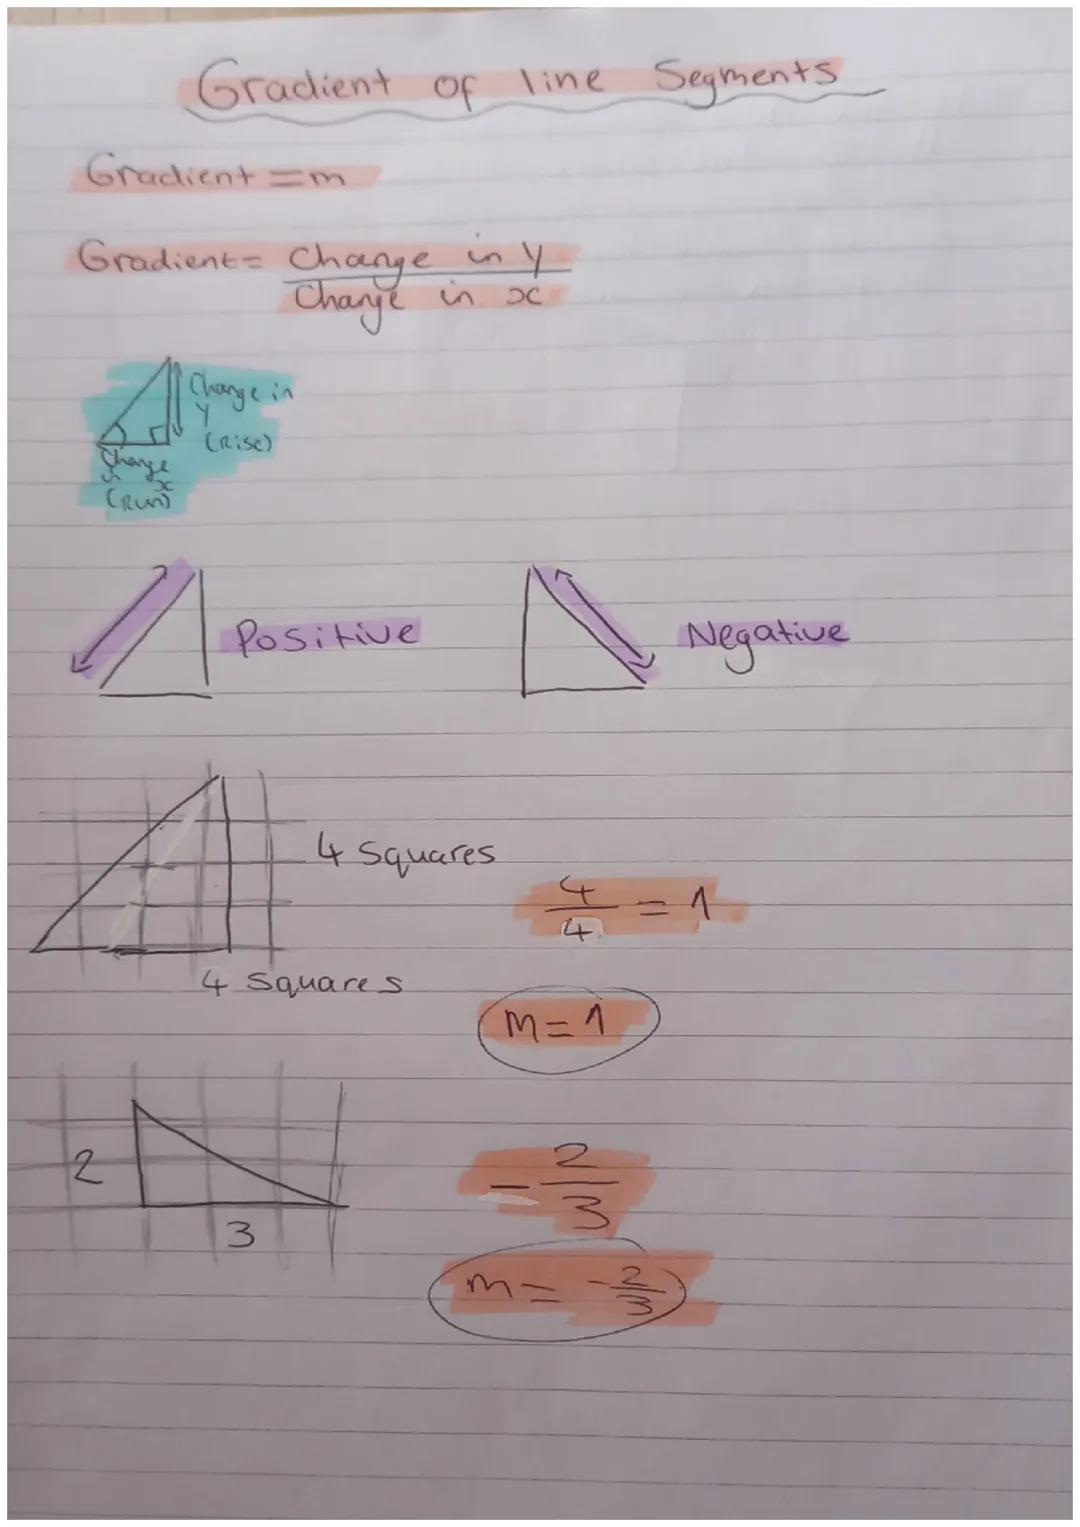 Gradient of line Segments
Gradient = m
Gradient = Change in y
Change in x
Change in
y
(Rise)
Change
in x
(Run)
Positive
Negative
4 Squares
4/4 = 1
4 Squares
m = 1
2
3
- 2/3
m = - 2/3